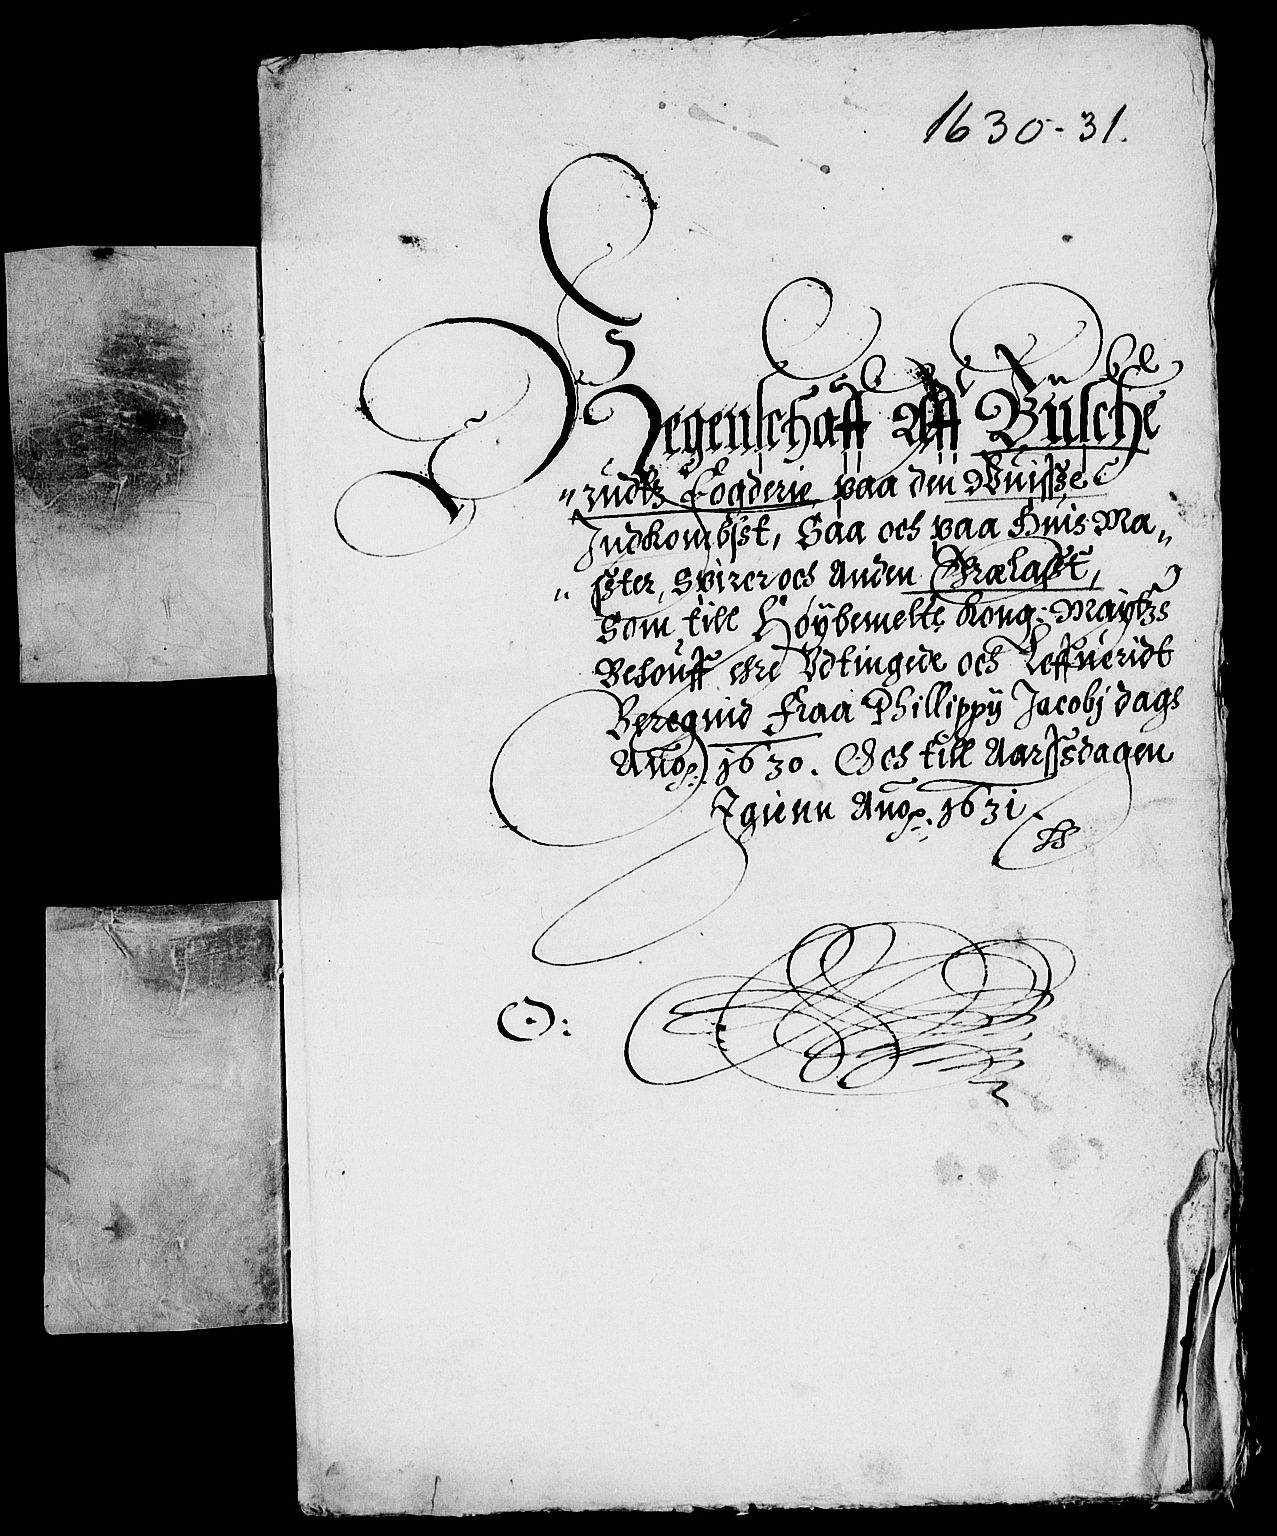 1630-31.
Regenschaff Aff Büsche
"rudtz Fogderie paa den Wuisze
Indkombst, Saa och paa Huis Ma„
"ster, Spirer och Anden Trælast,
Som till Høÿbemelte Kong: Maÿtzs
Behouff ere Vdtingede och Leffueridt
Beregnid Fraa Phillippÿ Jacobj dags
Anno 1630. Och till Aarssdagen
Igienn Anno 1631